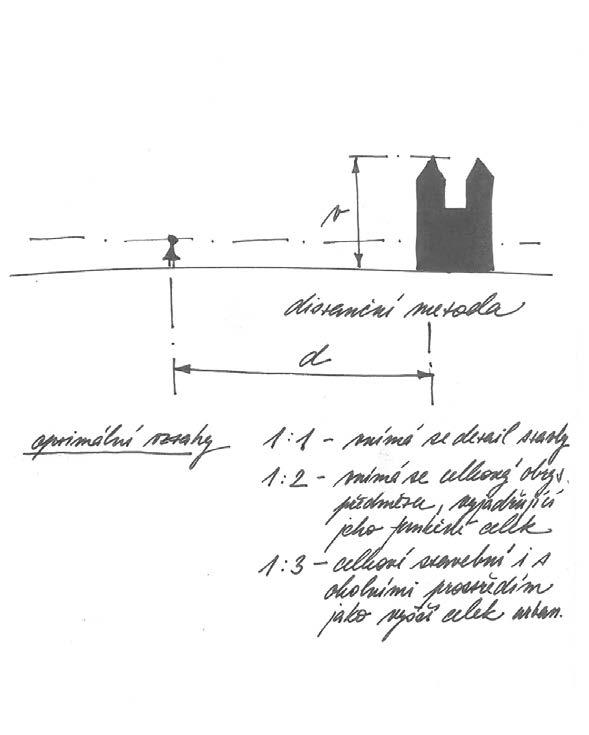 v
distanční metoda
d
optimální vztahy 1:1 - vnímá se detail stavby
1:2 - vnímá se celkový obrys
předmětu, vyjadřující
jeho funkční celek
1:3 - celkové stavební i s
okolními prostředím
jako vyšší celek urban.